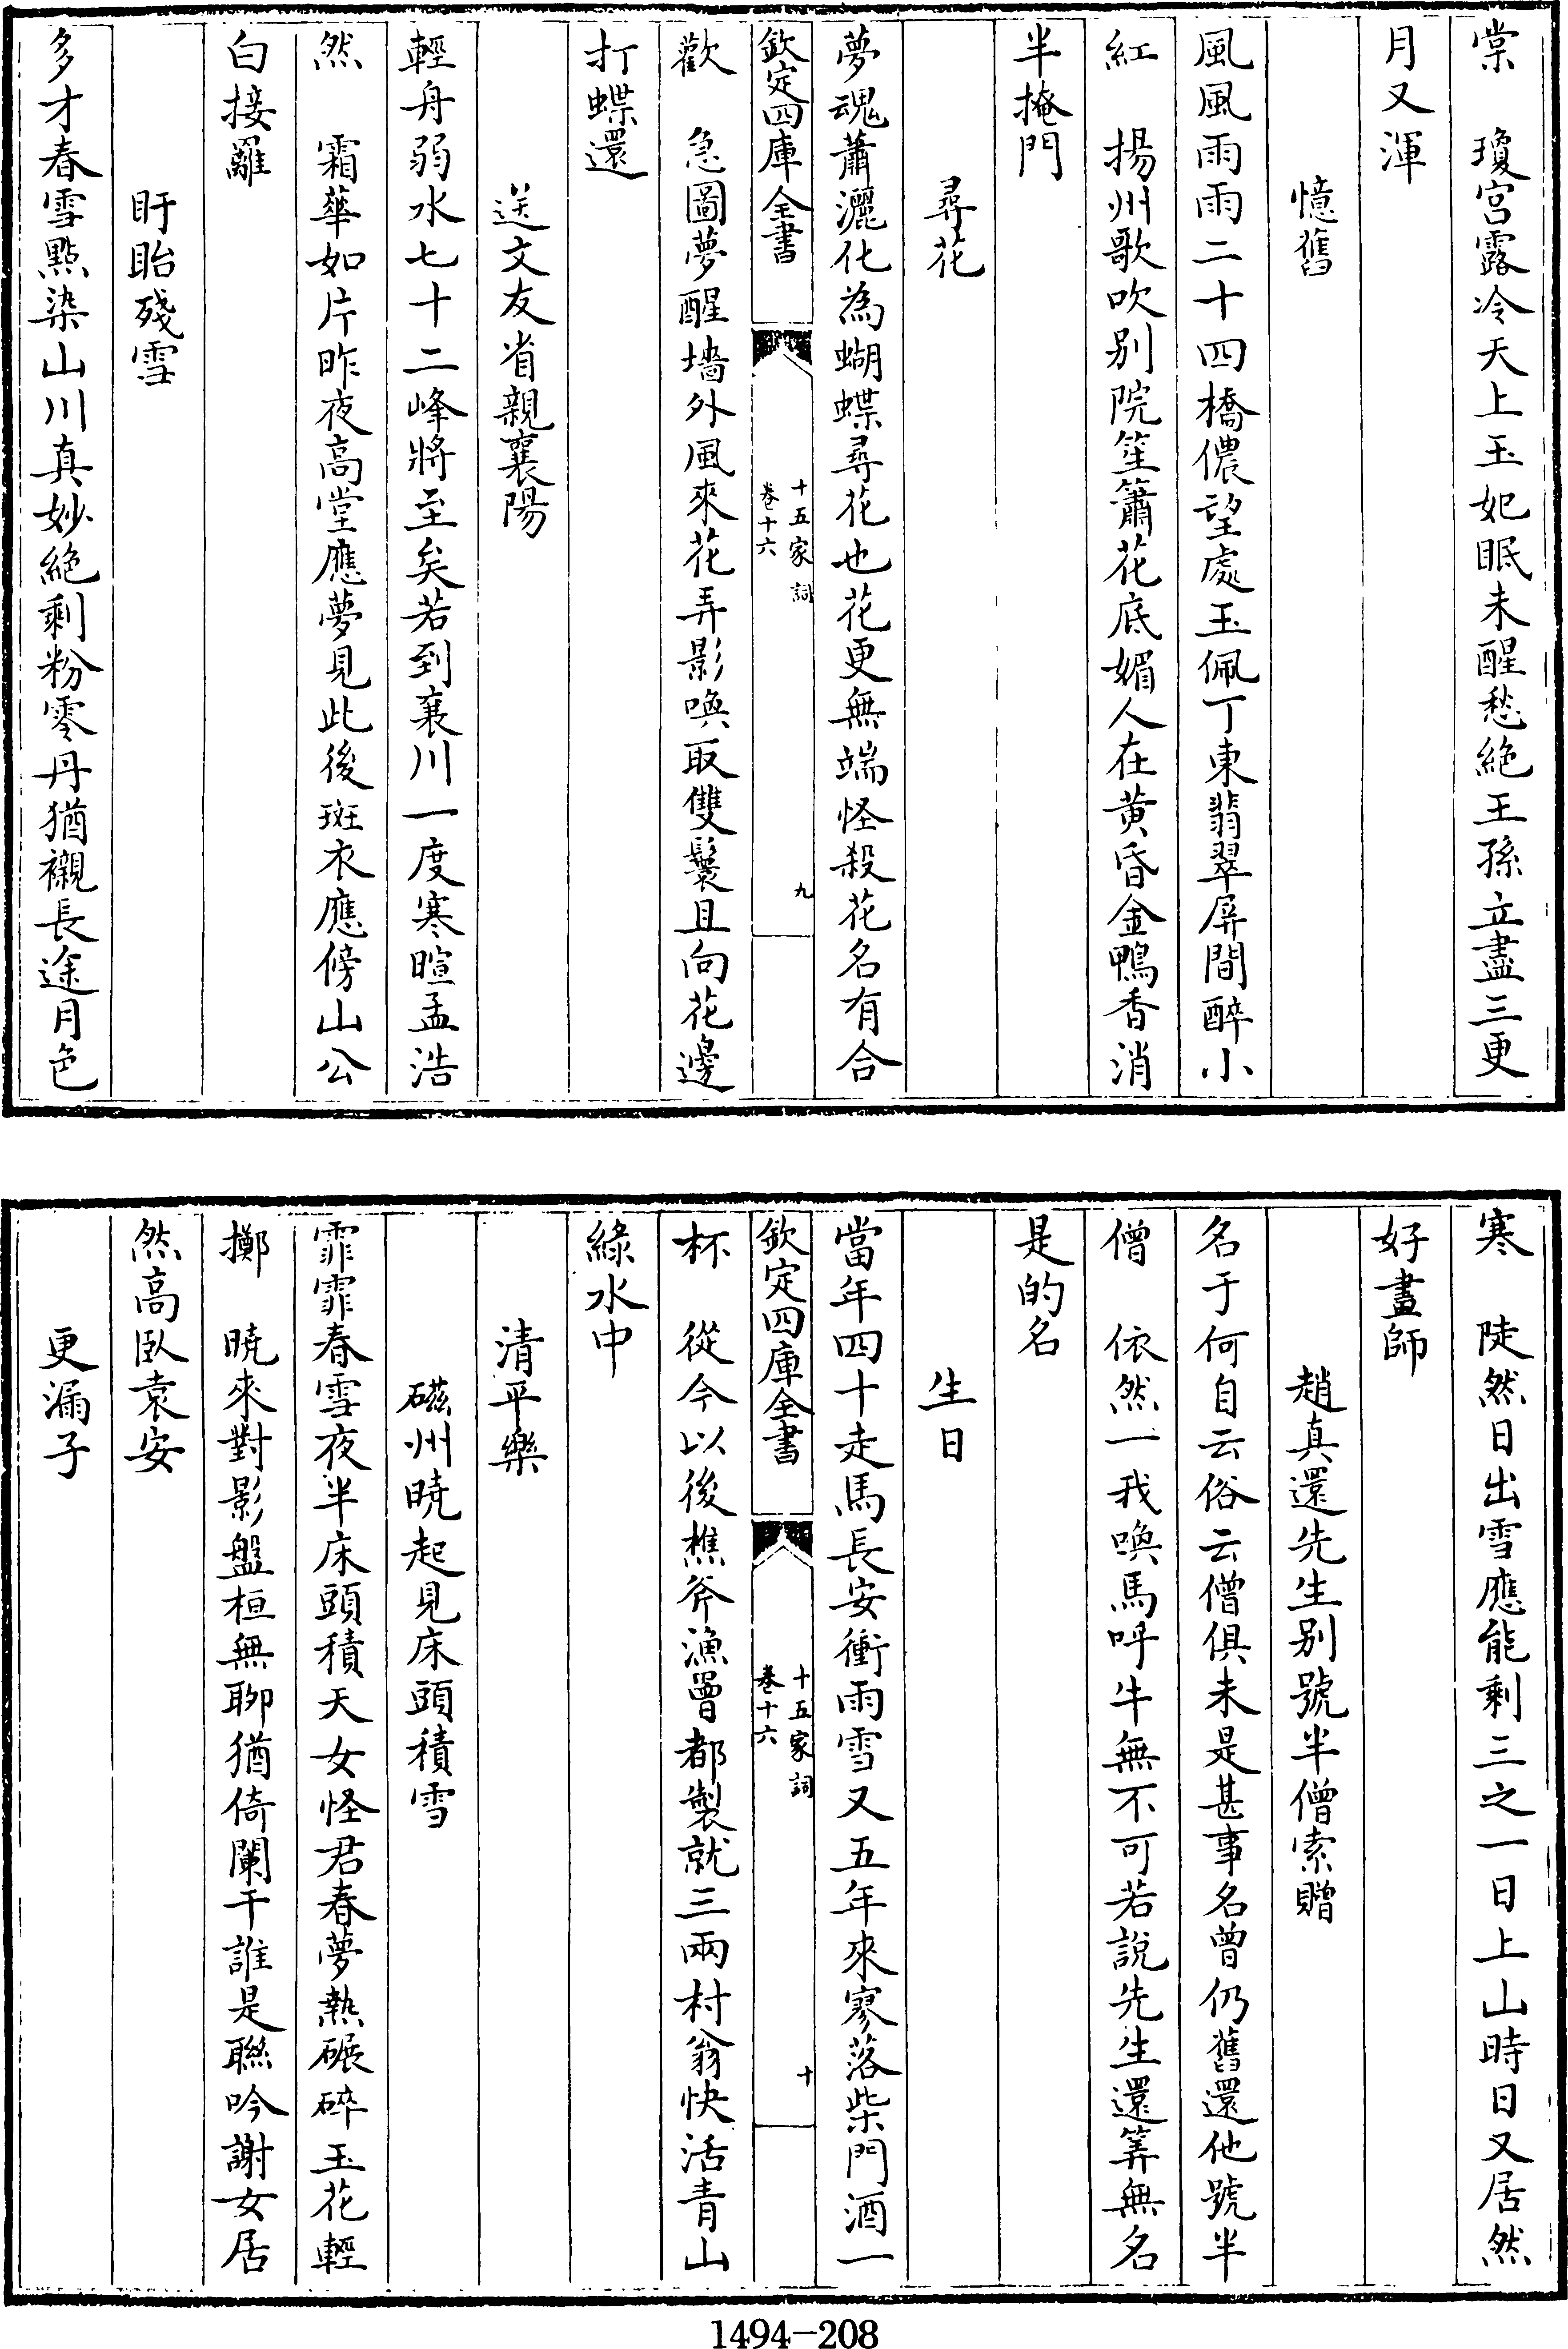 棠　瓊宮露冷天上玉妃眠未醒愁絶王孫立盡三更
月又渾
憶舊
風風雨雨二十四橋儂望處玉佩丁東翡翠屏間醉小
紅　揚州歌吹别院笙簫花底媚人在黄昏金鴨香消
半掩門
尋花
夢魂蕭灑化為蝴蝶尋花也花更無端怪殺花名有合
欽定四庫全書
十五家詞
卷十六
九
歡　急圖夢醒墻外風來花弄影喚取雙鬟且向花邊
打蝶還
送文友省親襄陽
輕舟弱水七十二峰將至矣若到襄川一度寒暄孟浩
然　霜華如片昨夜高堂應夢見此後斑衣應傍山公
白接䍦
盱眙殘雪
多才春雪點染山川真妙絶剩粉零丹猶襯長途月色
寒　陡然日出雪應能剩三之一日上山時日又居然
好畫師
趙真還先生别號半僧索贈
名于何自云俗云僧俱未是甚事名曾仍舊還他號半
僧　依然一我喚馬呼牛無不可若說先生還算無名
是的名
生日
當年四十走馬長安衝雨雪又五年來寥落柴門酒一
欽定四庫全書
十五家詞
卷十六
十
杯　從今以後樵斧漁罾都製就三兩村翁快活青山
綠水中
清平樂
磁州曉起見床頭積雪
霏霏春雪夜半床頭積天女怪君春夢熱碾碎玉花輕
擲　曉來對影盤桓無聊猶倚闌干誰是聯吟謝女居
然高臥袁安
更漏子
1494-208